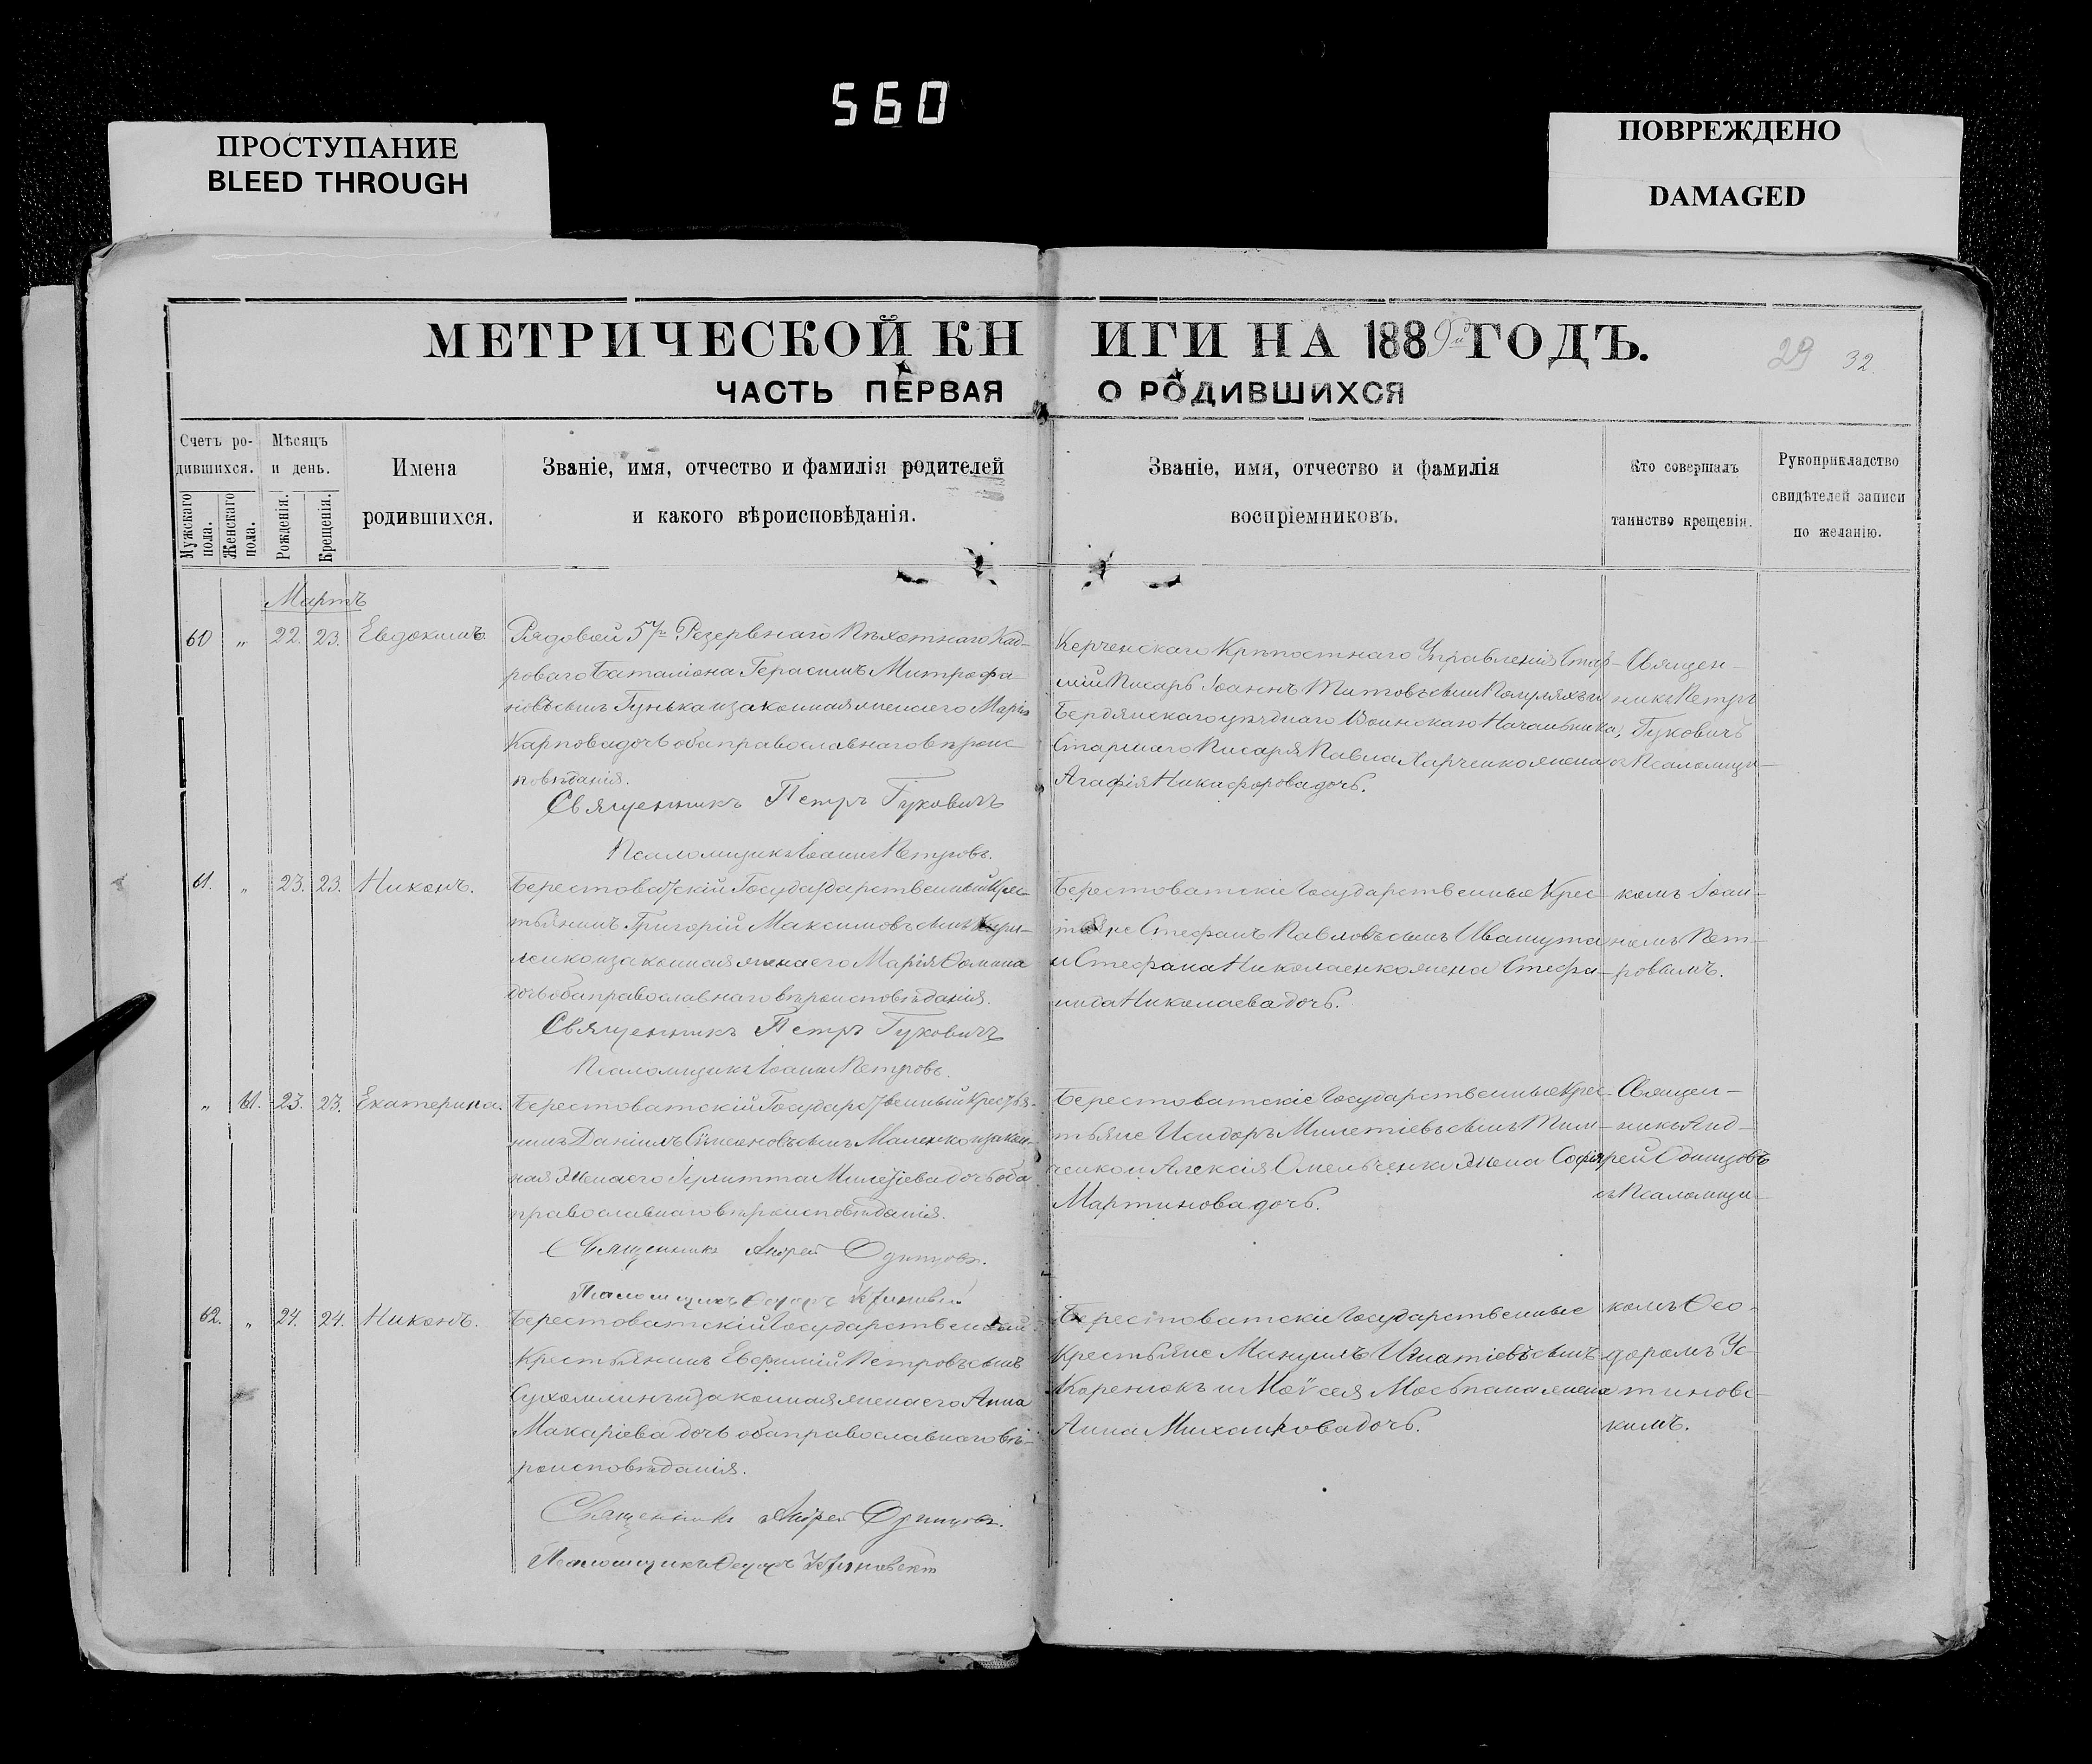 560
ПРОСТУПАНИЕ
BLEED THROUGH
ПОВРЕЖДЕНО
DAMAGED
МЕТРИЧЕСКОЙ КНИГИ НА 1889й ГОДЪ.
29 32
ЧАСТЬ ПЕРВАЯ О РОДИВШИХСЯ
Счетъ ро-
дившихся.
Мужскаго пола.
Женскаго пола.
Мѣсяцъ
и день.
Рожденія.
Крещенія.
Имена
родившихся.
Званіе, имя, отчество и фамилія родителей
и какого вѣроисповѣданія.
Званіе, имя, отчество и фамилія
воспріемниковъ.
Кто совершалъ
таинство крещенія.
Рукоприкладство
свидѣтелей записи
по желанію.
Мартъ
60 „ 22. 23. Евдокимъ
Рядовой 57го Резервнаго Пѣхотнаго Кад-
роваго Баталіона Герасимъ Митрофа
новъ сынъ Гунька и законная жена его Марія
Карпова дочь оба православнаго вѣроис
повѣданія.
Священникъ Петръ Гуковичъ
Псаломщикъ Іоаннъ Петровъ.
Керченскаго Крѣпостнаго Управленія Стар-
шій Писарь Іоаннъ Титовъ сынъ и
Бердянскаго уѣзднаго Воинскаго Начальника,
Старшаго Писаря Павла Харченко жена
Агафія Никифорова дочь.
Священ-
никъ Петръ
Гуковичъ
съ Псаломщи-
61. „ 23. 23. Никонъ.
Берестоватскій Государственный Крес-
тьянинъ Григорій Максимовъ сынъ Кири-
ленко и законная жена его Марія Ѳомина
дочь оба православнаго вѣроисповѣданія.
Священникъ Петръ Гуковичъ
Псаломщикъ Іоаннъ Петровъ.
Берестоватскіе Государственные Крес-
тьяне Стефанъ Павловъ сынъ Ивашута
и Стефана Николаенко жена Стефа-
нида Николаева дочь.
комъ Іоан-
номъ Пет-
ровымъ.
„ 61. 23. 23. Екатерина.
Берестоватскій Государственный Крестья-
нинъ Даніилъ Сѵмеоновъ сынъ Маленко и закон-
ная жена его Іулитта Милетіева дочь оба
православнаго вѣроисповѣданія.
Священникъ Андрей Одинцовъ.
Псаломщикъ Ѳеодоръ
Берестоватскіе Государственные Крес-
тьяне Исидоръ Милетіевъ сынъ Тим-
ченко и Алексія Омельченка жена Софія
Мартинова дочь.
Священ-
никъ Анд-
рей Одинцовъ
съ Псаломщи-
62. „ 24. 24. Никонъ.
Берестоватскій Государственный
Крестьянинъ Евфимій Петровъ сынъ
Сухомлинъ и законная жена его Анна
Макаріева дочь оба православнаго вѣ-
роисповѣданія.
Священникъ Андрей Одинцовъ.
Псаломщикъ Ѳеодоръ
Берестоватскіе Государственные
Крестьяне Мануилъ Игнатіевъ сынъ
Коренюкъ и Моѵсея Мосьпана жена
Анна Михаилова дочь.
комъ Ѳео-
доромъ Ус-
тиновс-
кимъ.